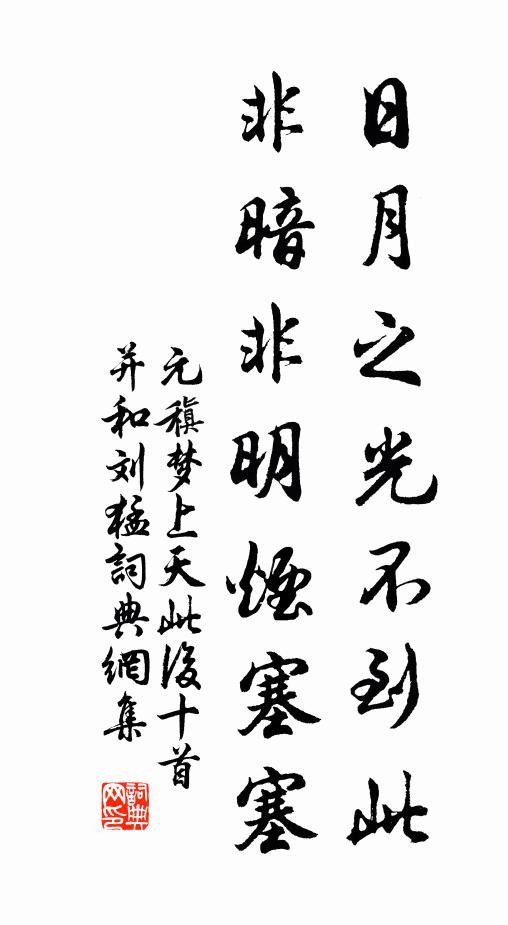 日月之光不到此
非暗非明煙塞塞
元稹梦上天此後十首
并和刘猛詞典網集
詞典
网印